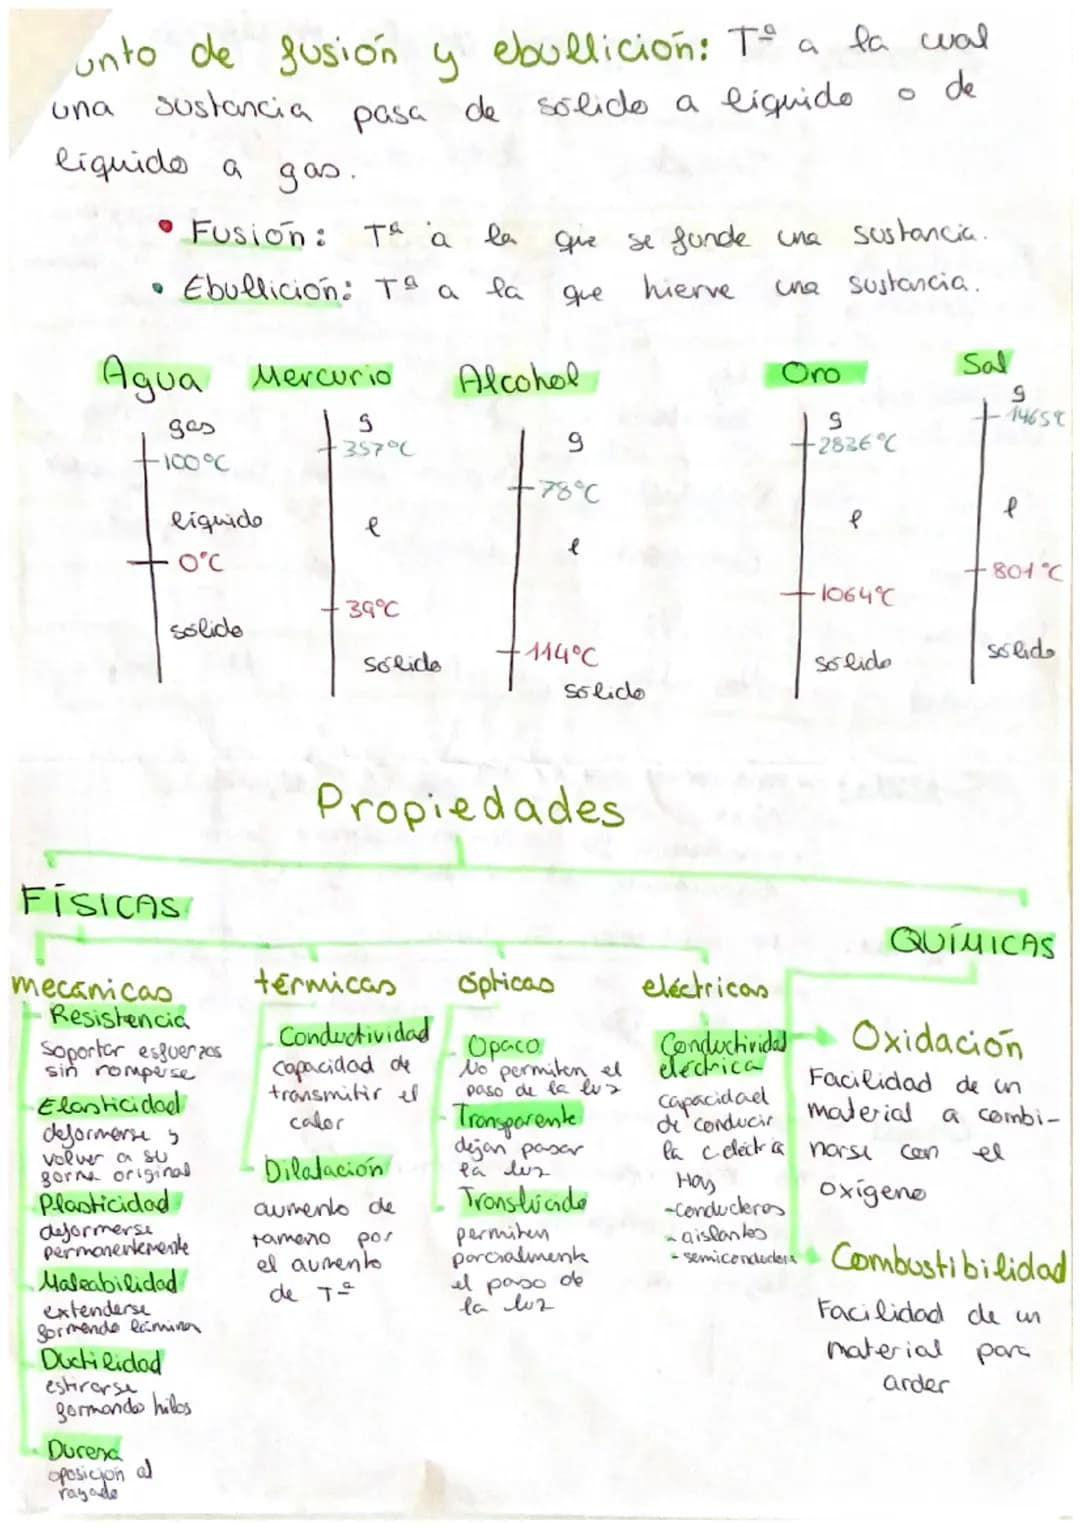 unto de fusión y ebullición: Tª a la cual
una sustancia pasa de sólido a líquido o de
líquido a gas.
• Fusión: Tª a la que se funde una sustancia.
• Ebullición: Tª a la que hierve una sustancia.
Agua
gas
100°C
líquido
0°C
sólido
Mercurio
g
357°C
l
39°C
sólido
Alcohol
g
78°C
l
114°C
sólido
Oro
g
2836°C
l
1064°C
sólido
Sal
g
1465°C
l
801°C
sólido
Propiedades
FÍSICAS
mecánicas
Resistencia
Soportar esfuerzos
sin romperse
Elasticidad
deformarse y
volver a su
forma original
Plasticidad
deformarse
permanentemente
Maleabilidad
extenderse
formando láminas
Ductilidad
estirarse
formando hilos
Dureza
oposición al
rayado
térmicas
Conductividad
capacidad de
transmitir el
calor
Dilatación
aumento de
tamaño por
el aumento
de Tª
ópticas
Opaco
No permiten el
paso de la luz
Transparente
dejan pasar
la luz
Translúcido
permiten
parcialmente
el paso de
la luz
eléctricas
Conductividad
eléctrica
capacidad
de conducir
la c eléctrica
Hay
-conductores
-aislantes
-semiconductores
QUÍMICAS
Oxidación
Facilidad de un
material a combi-
narse con el
oxígeno
Combustibilidad
Facilidad de un
material para
arder